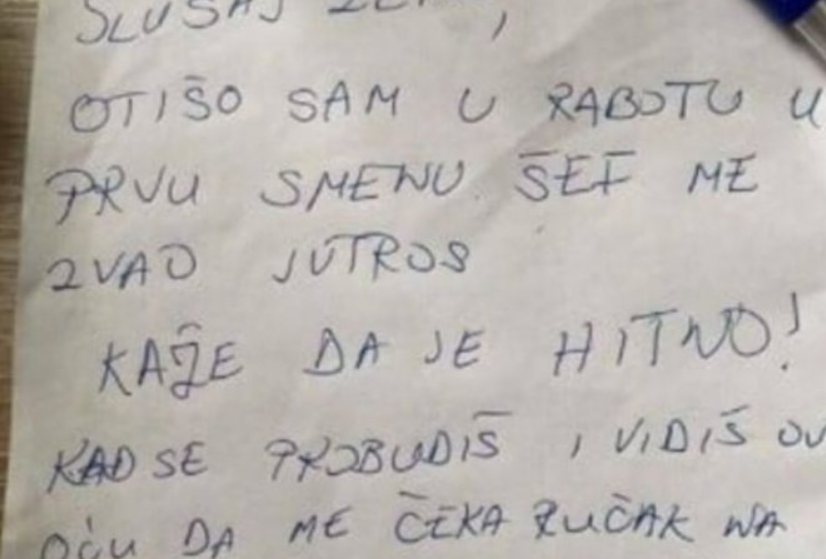 SLUŠAJ
OTIŠO SAM U RABOTU U
PRVU SMENU. ŠEF ME
ZVAO JUTROS
KAŽE DA JE HITNO!
KAD SE PROBUDIŠ I VIDIŠ
OĆU DA ME ČEKA RUČAK NA